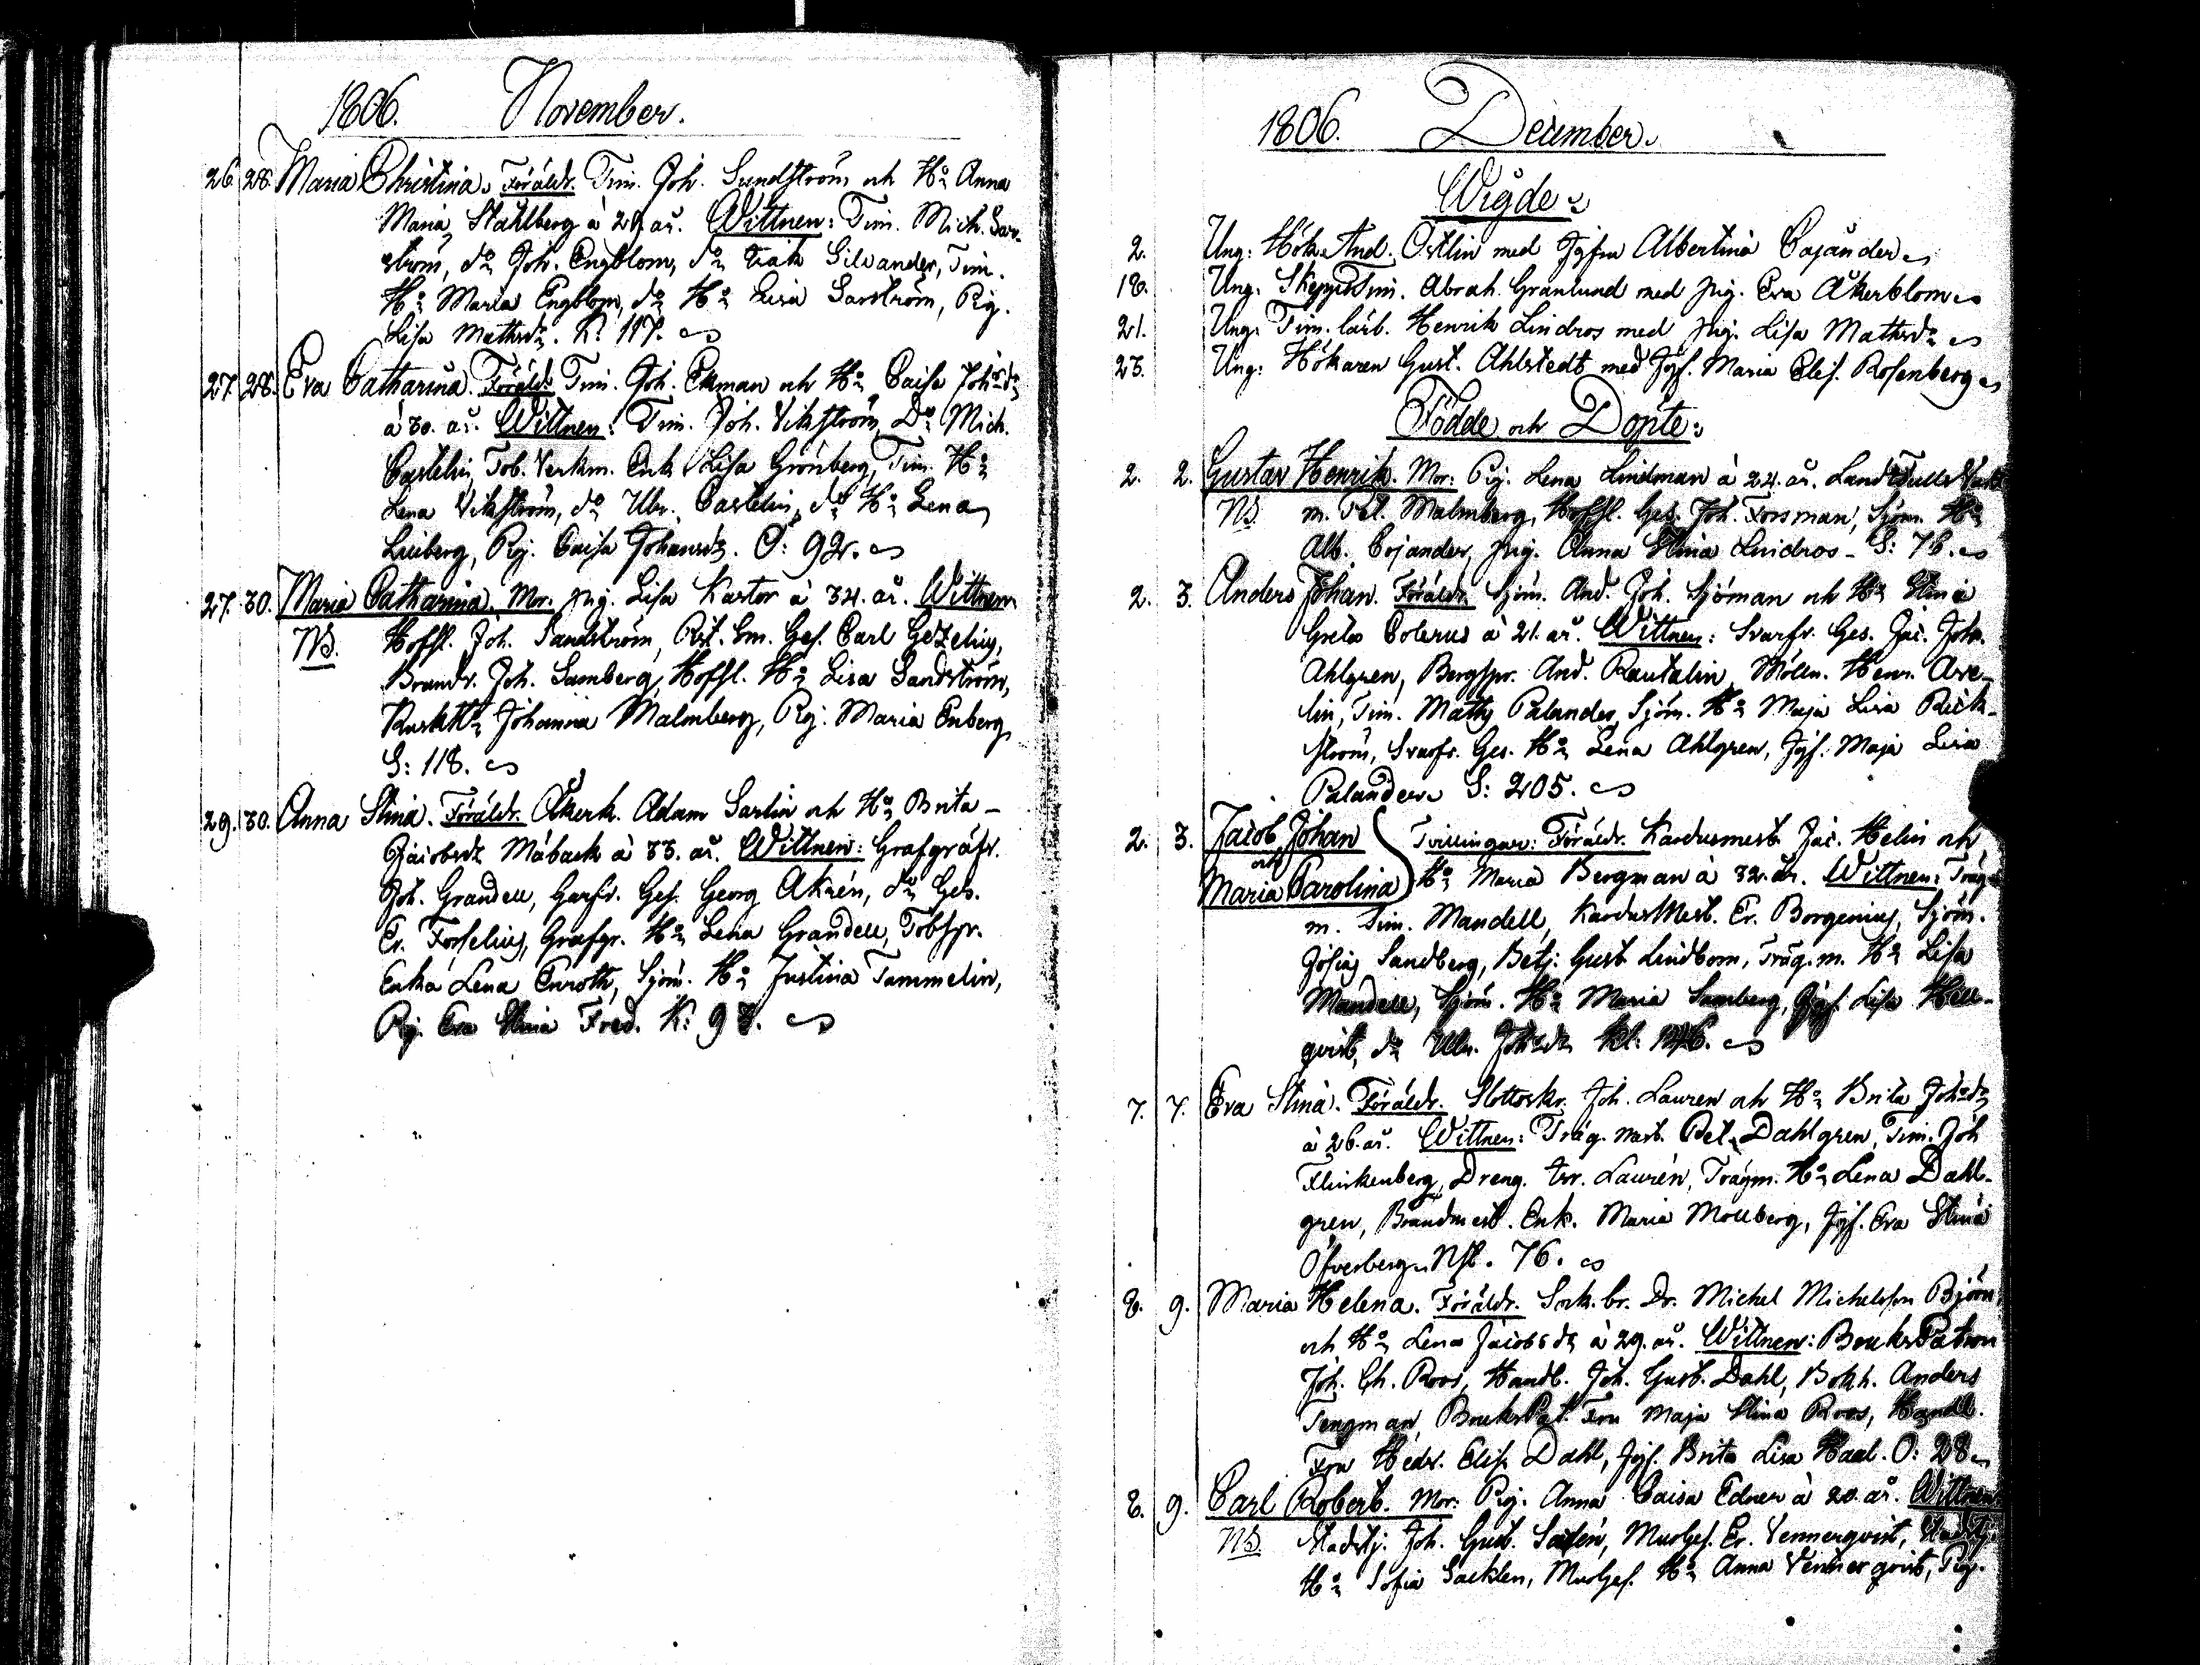 1806. November.
26. 28. Maria Christina. Föräldr. Tim. Joh. Sundström och H:u Anna
Maria Stahlberg à 29 år. Wittnen: Tim. Mich. Sar-
ström, d:o Joh. Engblom, d:o Silvander, Tim.
H:u Maria Engblom, d:o H:u Lisa Sarström, Pig.
Lisa Mathsdr. K: 117.
27. 28. Eva Catharina. Föräldr. Tim. Joh. Ekman och H:u Caisa Joh:sdr
à 30. år. Wittnen: Tim. Joh. Vikström, D:o Mich.
Castelin, Tob. Verkm. Enk. Lisa Grönberg, Tim. H:u
Lena Vikström, d:o Ulr. Castelin, d:o H:u Lena
Pig. Caisa Johansdr. O: 92.
27. 30. Maria Catharina. Mor: pig. Lisa Kastor à 34. år. Wittnen
NB. Hofsl. Joh. Sandström, Gef. Carl Gezelius,
Brandv. Joh. Samberg, Hofsl. H:u Lisa Sandström,
Johanna Malmberg, Pig. Maria Enberg,
S: 118.
29. 30. Anna Stina. Föräldr. Åkerk. Adam Sarlin och H:u Brita
Jacobsdr Måback à 33. år. Wittnen: Grafgräfv.
Joh. Grandell, Garfv. Gef. Georg Akrén, d:o Ges.
Er. Forselius, Grafgr. H:u Lena Grandell, Tobspr.
Enka Lena Enroth, Sjöm. H:u Justina Tammelin,
Pig. Eva Stina Fred. K: 98.
1806. December.
Wigde
2. Ung: Hök. And. Östlin med Jgfru Albertina Cajander
18. Ung: Skepps Tim. Abrah. Granlund med pig. Eva Åkerblom
21. Ung: Tim. lärl. Henrik Lindros med pig. Lisa Mathsdr
23. Ung: Hökaren Gust. Ahlstedt med Jgf. Maria Elis. Rosenberg
Födde och Döpte:
2. 2. Gustav Henrik. Mor: Pig. Lena Lindman à 24. år.
NB. m. Pet. Malmberg, Hofsl. Ges. Joh. Forsman, Sjöm. H:u
Alb. Cajander, pig. Anna Stina Lindros - S: 76.
2. 3. Anders Johan. Föräldr. Sjöm. And. Joh. Sjöman och H:u Stina
Greta Colerus à 21. år. Wittnen: Svarfv. Ges. Jac. Joh.
Ahlgren, Bergspr. And. Rautalin, Mölln. Henr. Ave-
lin, Tim. Maths Palander, Sjöm. H:u Maja Lisa Rick-
ström, Svarfv. Ges. H:u Lena Ahlgren, Jgf. Maja Lisa
Palander. S: 205.
2. 3. Jacob Johan Tvillingar: Föräldr. Kardusmest. Jac. Helin och
och
Maria Carolina H:u Maria Bergman à 32. år. Wittnen: Träg.
m. Sim. Mandell, Kardus Mest. Er. Borgenius, Sjöm.
Josias Sandberg, Betj: Gust. Lindbom, Träg. m. H:u Lisa
Mandell, Sjöm. H:u Maria Samberg, Jgf. Lisa Hell-
qvist, d:o Ulr.
7. 7. Eva Stina. Föräldr. Slottsskr. Joh. Lauren och H:u Brita Joh:sdr
à 26. år. Wittnen: Träg. mest. Pet. Dahlgren, Tim. Joh
Flinkenberg, Dreng. Laurén, Trägm. H:u Lena Dahl-
gren, Brandmest. Enk. Maria Mollberg, Jgf. Eva Stina
Öfverberg. 76.
8. 9. Maria Helena. Föräldr. Sock. br. Dr. Michel Michelsson Björn
och H:u Lena Jacobsdr à 29. år. Wittnen: Bruks Patron
Joh. Ch. Roos, Handl. Joh. Gust. Dahl, Bokh. Anders
Tengman, Bruks Pat. Fru Maja Stina Roos, Handl.
Fru Hedv. Elis. Dahl, Jgf. Brita Lisa Haal. O: 28
8. 9. Carl Robert. Mor: Pig. Anna Caisa Edner à 20. år. Wittnen
NB. Stadstj. Joh. Gust. Murgef. Er. Vennerqvist, Stadstj.
H:u Sofia Sacklen, Murgef. H:u Anna Vennerqvist, Pig.